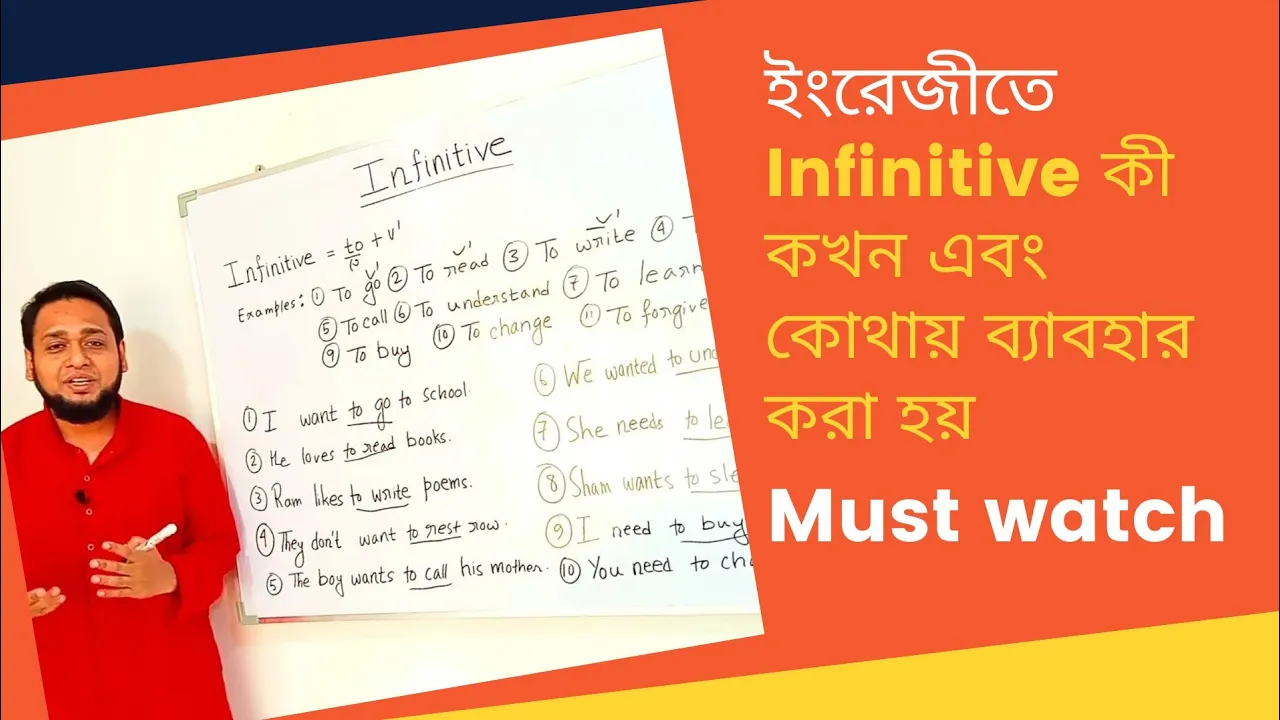 Infinitive
Infinitive = to + v¹
Examples: ① To go ② To read ③ To write ④
⑤ To call ⑥ To understand ⑦ To learn
⑨ To buy ⑩ To change ⑪ To forgive
① I want to go to school.
② He loves to read books.
③ Ram likes to write poems.
④ They don't want to rest now.
⑤ The boy wants to call his mother.
⑥ We wanted to
⑦ She needs to
⑧ Sham wants to
⑨ I need to buy
⑩ You need to
ইংরেজীতে
Infinitive কী
কখন এবং
কোথায় ব্যাবহার
করা হয়
Must watch